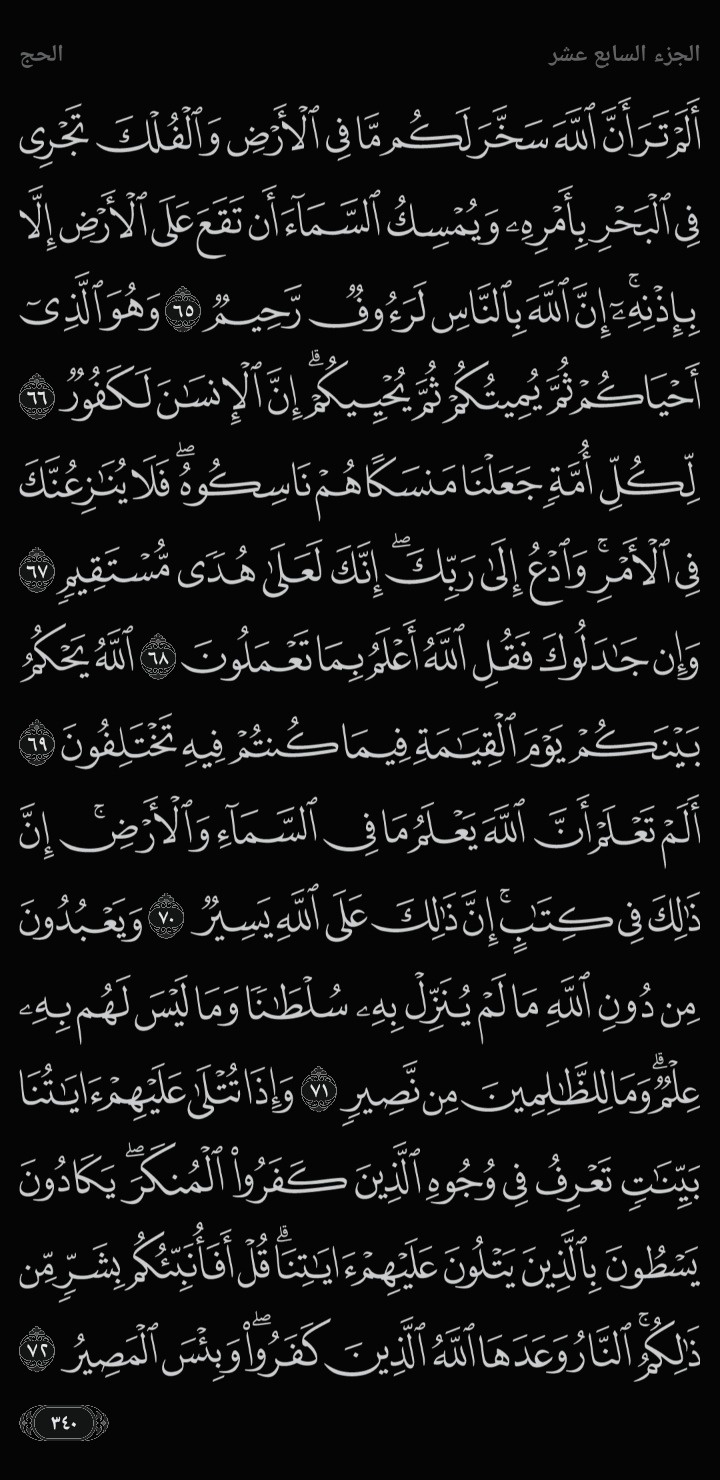 الجزء السابع عشر
الحج
أَلَمْ تَرَ أَنَّ ٱللَّهَ سَخَّرَ لَكُم مَّا فِى ٱلْأَرْضِ وَٱلْفُلْكَ تَجْرِى
فِى ٱلْبَحْرِ بِأَمْرِهِۦ وَيُمْسِكُ ٱلسَّمَآءَ أَن تَقَعَ عَلَى ٱلْأَرْضِ إِلَّا
بِإِذْنِهِۦٓ ۚ إِنَّ ٱللَّهَ بِٱلنَّاسِ لَرَءُوفٌ رَّحِيمٌ ٦٥ وَهُوَ ٱلَّذِىٓ
أَحْيَاكُمْ ثُمَّ يُمِيتُكُمْ ثُمَّ يُحْيِيكُمْ ۗ إِنَّ ٱلْإِنسَـٰنَ لَكَفُورٌ ٦٦
لِّكُلِّ أُمَّةٍ جَعَلْنَا مَنسَكًا هُمْ نَاسِكُوهُ ۖ فَلَا يُنَـٰزِعُنَّكَ
فِى ٱلْأَمْرِ ۚ وَٱدْعُ إِلَىٰ رَبِّكَ ۖ إِنَّكَ لَعَلَىٰ هُدًى مُّسْتَقِيمٍ ٦٧
وَإِن جَـٰدَلُوكَ فَقُلِ ٱللَّهُ أَعْلَمُ بِمَا تَعْمَلُونَ ٦٨ ٱللَّهُ يَحْكُمُ
بَيْنَكُمْ يَوْمَ ٱلْقِيَـٰمَةِ فِيمَا كُنتُمْ فِيهِ تَخْتَلِفُونَ ٦٩
أَلَمْ تَعْلَمْ أَنَّ ٱللَّهَ يَعْلَمُ مَا فِى ٱلسَّمَآءِ وَٱلْأَرْضِ ۚ إِنَّ
ذَٰلِكَ فِى كِتَـٰبٍ ۚ إِنَّ ذَٰلِكَ عَلَى ٱللَّهِ يَسِيرٌ ٧٠ وَيَعْبُدُونَ
مِن دُونِ ٱللَّهِ مَا لَمْ يُنَزِّلْ بِهِۦ سُلْطَـٰنًا وَمَا لَيْسَ لَهُم بِهِۦ
عِلْمٌ ۗ وَمَا لِلظَّـٰلِمِينَ مِن نَّصِيرٍ ٧١ وَإِذَا تُتْلَىٰ عَلَيْهِمْ ءَايَـٰتُنَا
بَيِّنَـٰتٍ تَعْرِفُ فِى وُجُوهِ ٱلَّذِينَ كَفَرُوا۟ ٱلْمُنكَرَ ۖ يَكَادُونَ
يَسْطُونَ بِٱلَّذِينَ يَتْلُونَ عَلَيْهِمْ ءَايَـٰتِنَا ۗ قُلْ أَفَأُنَبِّئُكُم بِشَرٍّ مِّن
ذَٰلِكُمُ ۚ ٱلنَّارُ وَعَدَهَا ٱللَّهُ ٱلَّذِينَ كَفَرُوا۟ ۖ وَبِئْسَ ٱلْمَصِيرُ ٧٢
٣٤٠